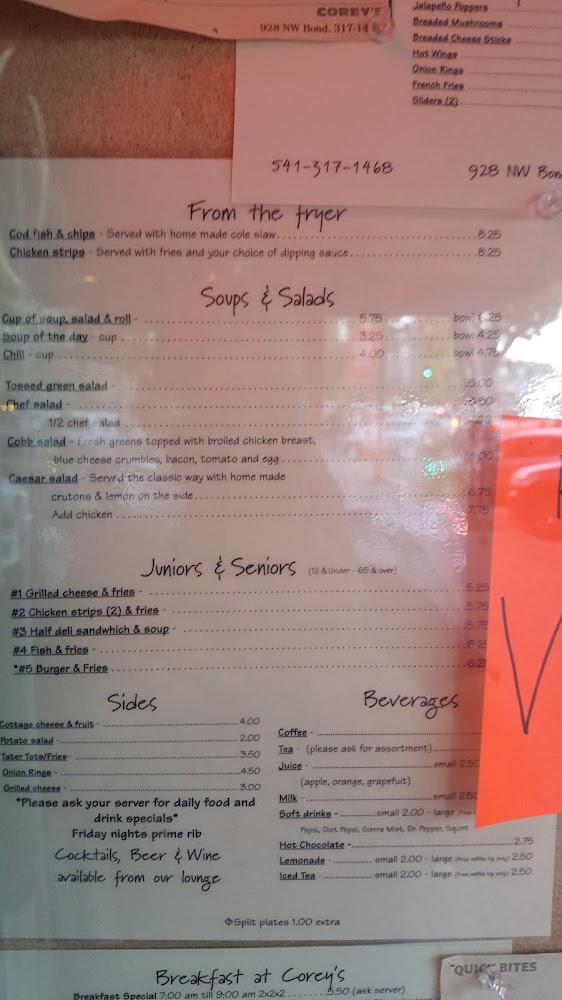 COREY'S
928 NW Bond. 317-14
Jalapeño Poppers
Breaded Mushrooms
Breaded Cheese Sticks
Hot Wings
Onion Rings
French Fries
Sliders (2)
541-317-1468 928 NW Bon
From the fryer
Cod fish & chips - Served with home made cole slaw 8.25
Chicken strips - Served with fries and your choice of dipping sauce 8.25
Soups & Salads
Cup of soup, salad & roll - 5.75 bowl .25
Soup of the day - cup 3.25 bowl 4.25
Chili - cup 4.00 bowl 4.75
Tossed green salad - 5.00
Chef salad - .50
1/2 chef salad
Cobb salad - Fresh greens topped with broiled chicken breast,
blue cheese crumbles, bacon, tomato and egg
Caesar salad - Served the classic way with home made
crutons & lemon on the side 6.75
Add chicken 7.75
Juniors & Seniors (12 & Under - 65 & over)
#1 Grilled cheese & fries - 5.25
#2 Chicken strips (2) & fries - 5.75
#3 Half deli sandwhich & soup - 5.75
#4 Fish & fries - 6.25
*#5 Burger & Fries 6.25
Sides
Cottage cheese & fruit - 4.00
Potato salad - 2.00
Tater Tots/Fries - 3.50
Onion Rings - 4.50
Grilled cheese - 3.00
*Please ask your server for daily food and
drink specials*
Friday nights prime rib
Cocktails, Beer & Wine
available from our lounge
Beverages
Coffee -
Tea - (please ask for assortment)
Juice - small 2.50
(apple, orange, grapefuit)
Milk - small 2.50
Soft drinks - small 2.00 - large
Pepsi, Diet Pepsi, Sierra Mist, Dr. Pepper, Squirt
Hot Chocolate - 2.75
Lemonade - small 2.00 - large 2.50
Iced Tea - small 2.00 - large 2.50
V
Split plates 1.00 extra
Breakfast at Corey's
Breakfast Special 7:00 am till 9:00 am 2x2x2 5.50 (ask server)
"QUICK BITES